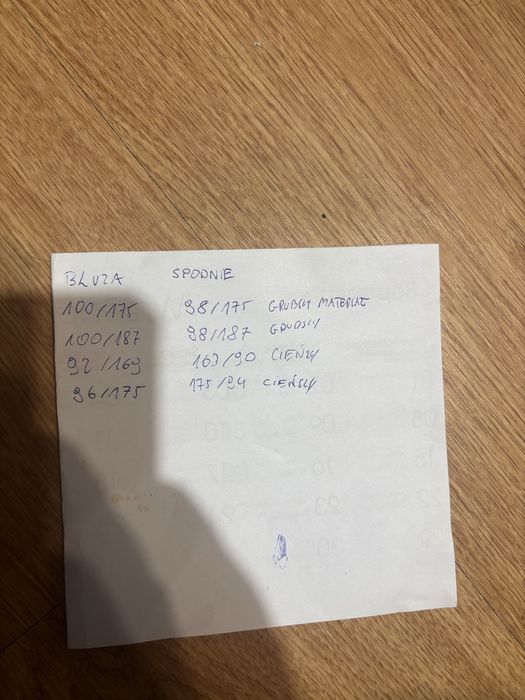 BLUZA SPODNIE
100/175 98/175 GRUBSZY MATERIAŁ
100/187 98/187 GRUBSZY
92/169 163/90 CIEŃSZY
96/175 175/94 CIEŃSZY